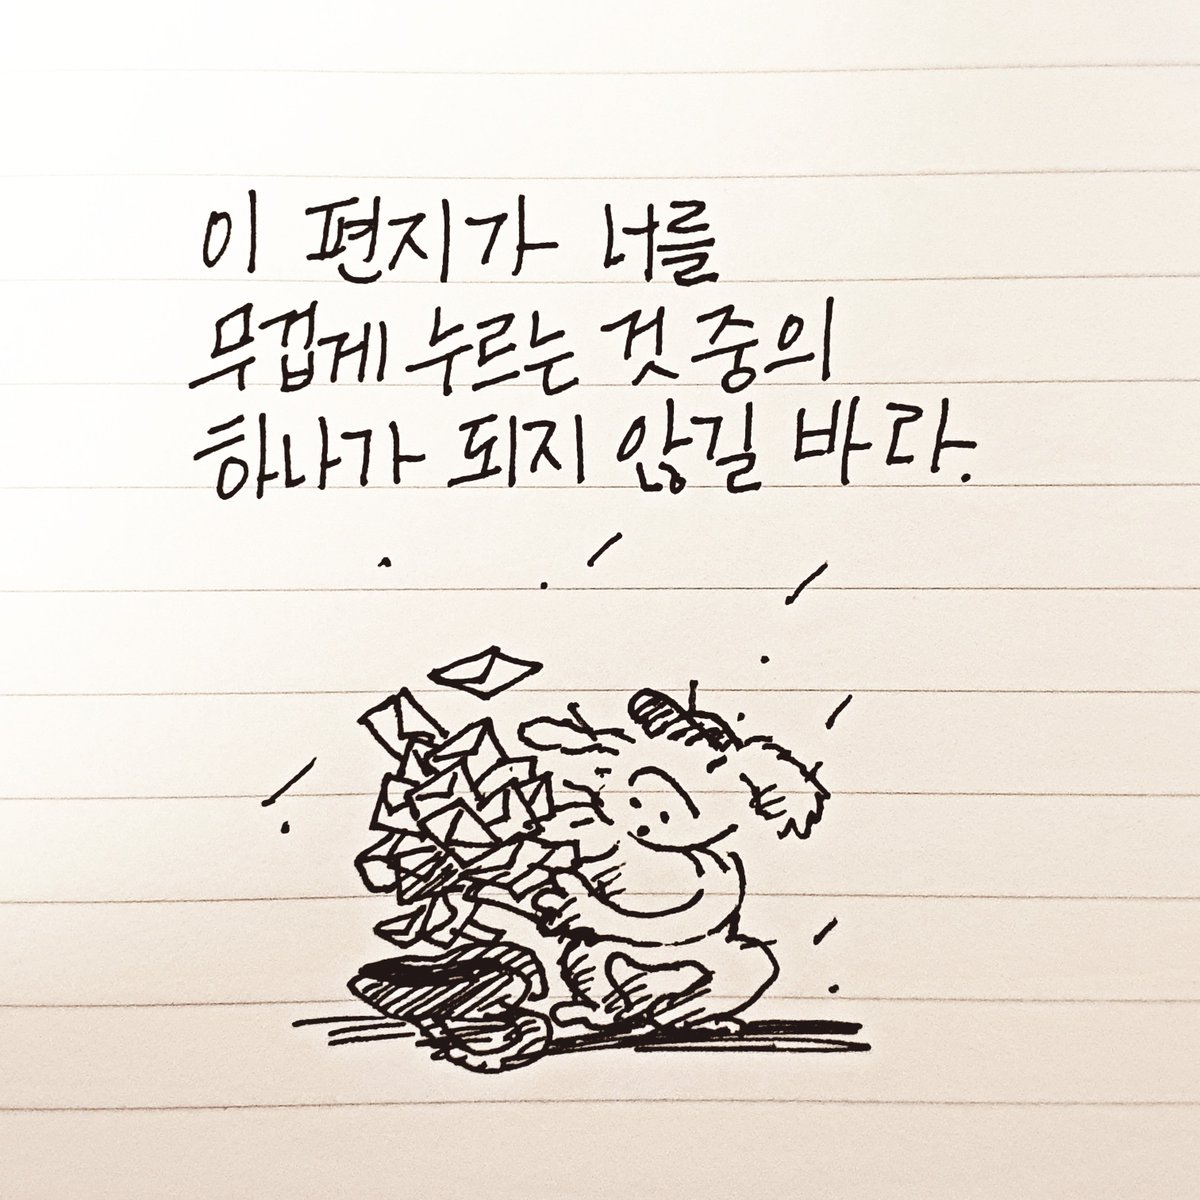 이 편지가 너를
무겁게 누르는 것 중의
하나가 되지 않길 바라.